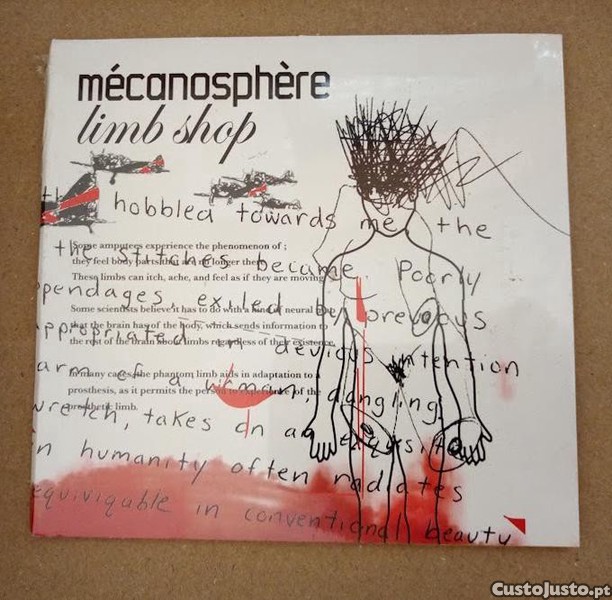 mécanosphère
limb shop
hobbled towards me, the
the stitches became. Poorly
pendages, exiled by previous
ppropriated devious intention
arm of a woman, dangling
wretch, takes on an exquisite
n humanity often radiates
equiviqable in conventional beauty
Some amputees experience the phenomenon of ;
they feel body parts that are no longer there
These limbs can itch, ache, and feel as if they are moving
Some scientists believe it has to do with a kind of neural
that the brain has of the body, which sends information to
the rest of the brain about limbs regardless of their existence.
In many cases the phantom limb aids in adaptation to a
prosthesis, as it permits the person to experience of the
prosthetic limb.
CustoJusto.pt